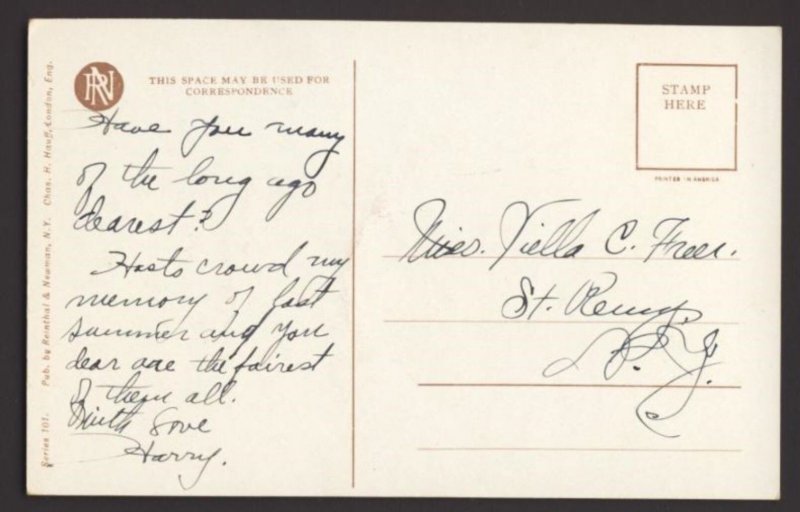 RN
THIS SPACE MAY BE USED FOR
CORRESPONDENCE
Have you many
of the long ago
dearest?
Hosts crowd my
memory of last
summer and you
dear are the fairest
of them all.
With Love
Harry.
STAMP
HERE
PRINTED IN AMERICA
Miss. Viella C. Freer.
St. Remy,
N.Y.
Series 101. Pub. by Reinthal & Newman, N.Y. Chas. H. Hauff, London, Eng.